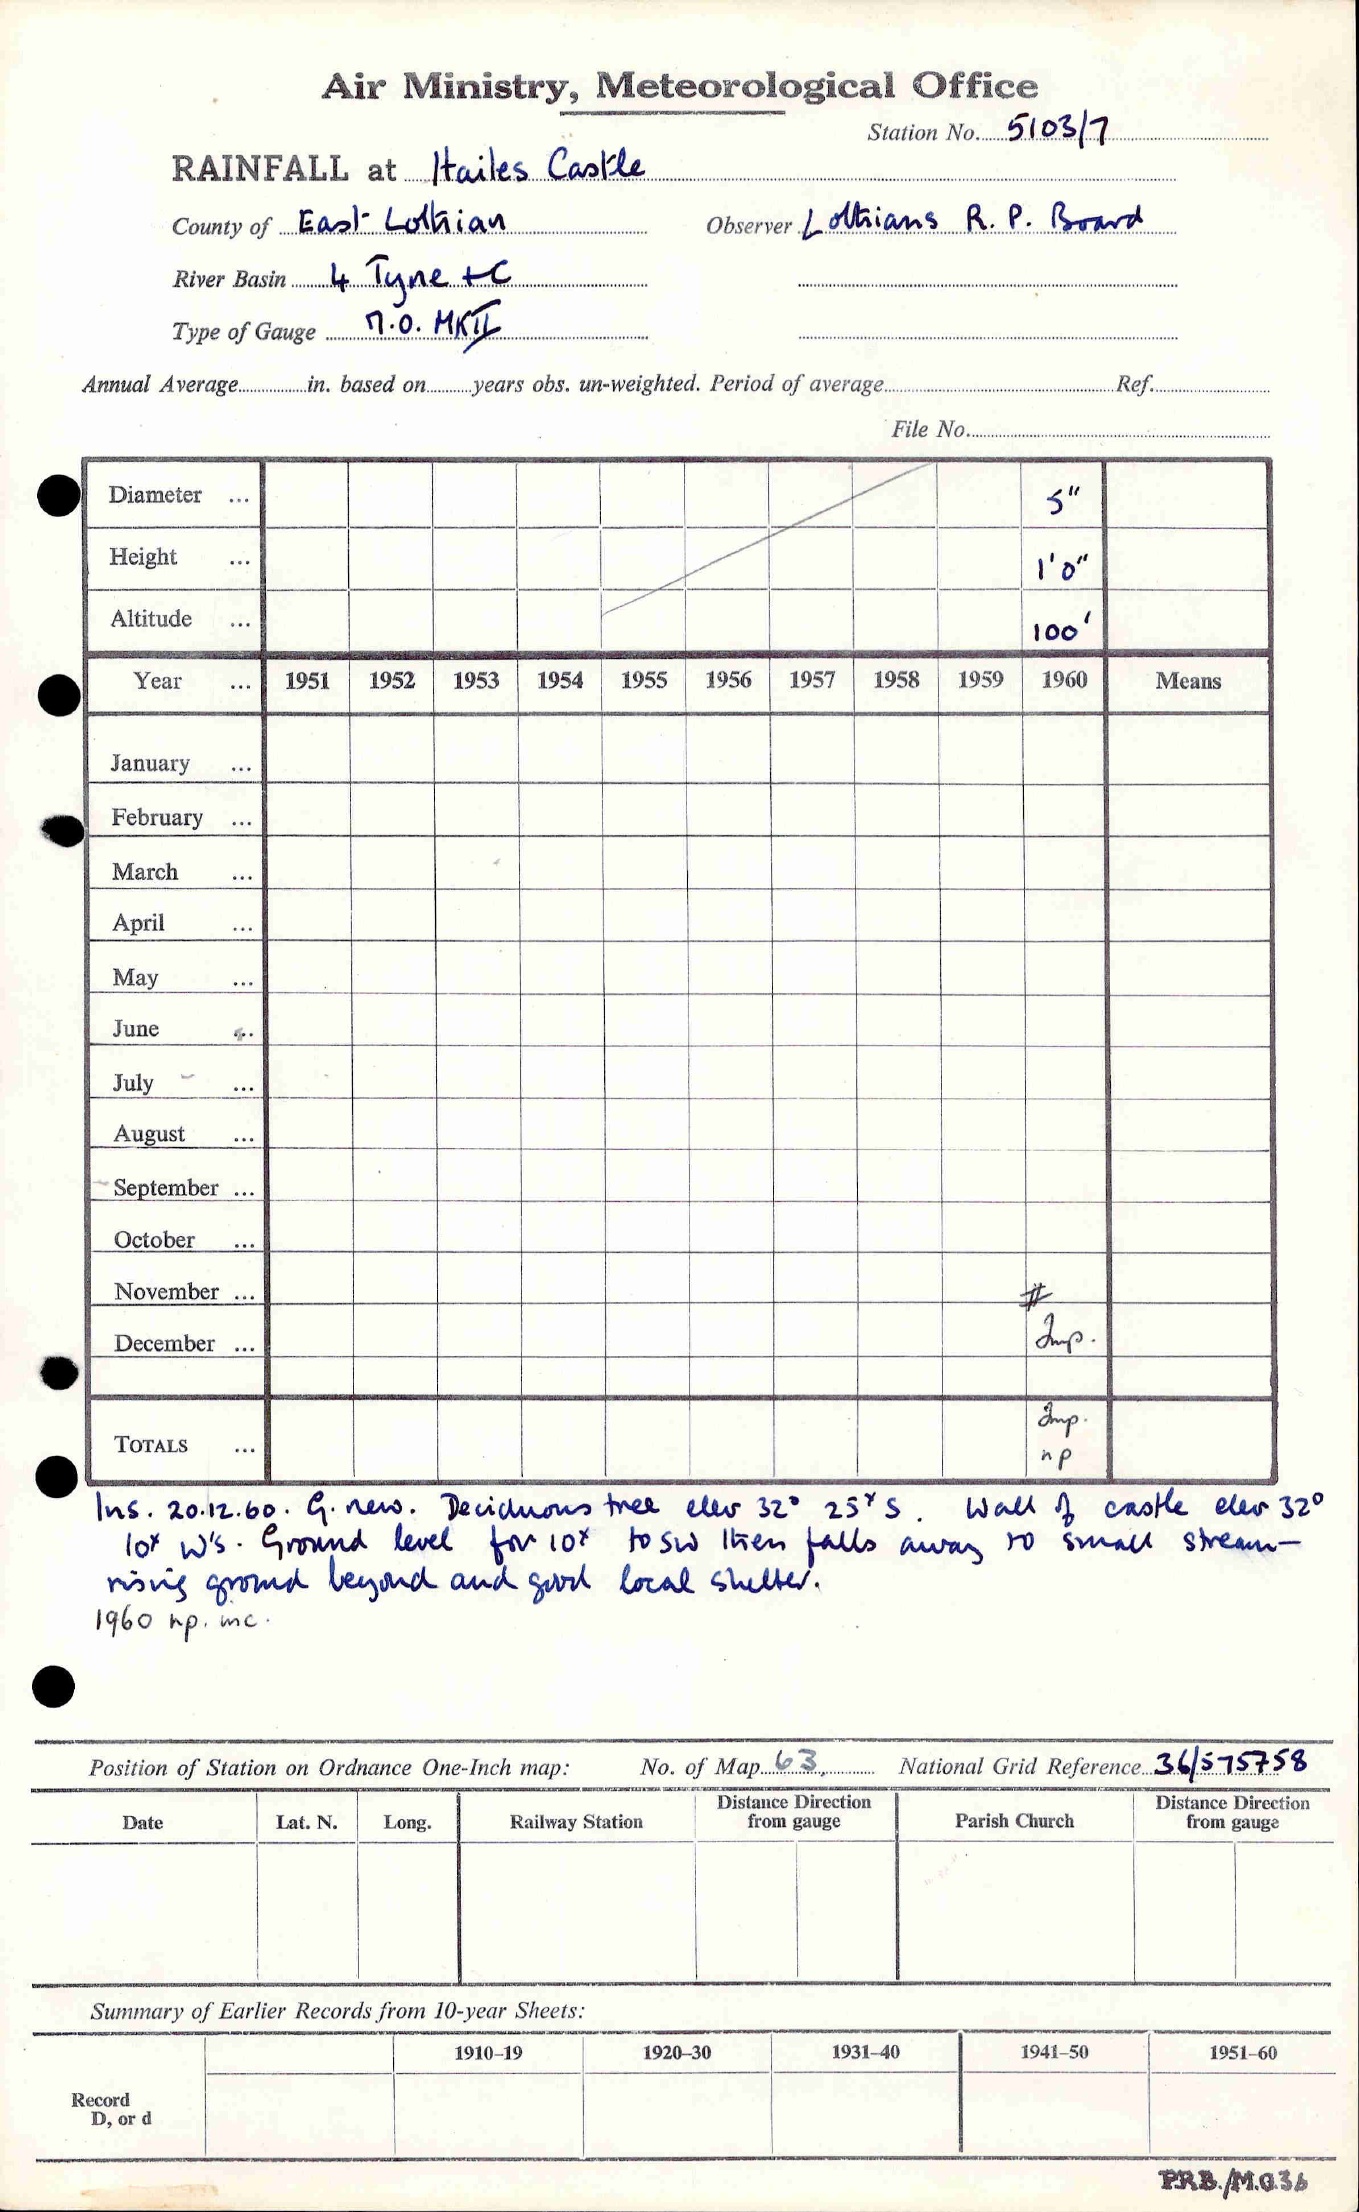 Air Ministry, Meteorological Office
Station No. 5103/7
RAINFALL at Hailes Castle
County of East Lothian Observer Lothians R. P. Board
River Basin 4 Tyne +C
Type of Gauge M.O. MKII
Annual Average in. based on years obs. un-weighted. Period of average Ref.
File No.
Diameter ... 5"
Height ... 1'0"
Altitude ... 100'
Year ... 1951 1952 1953 1954 1955 1956 1957 1958 1959 1960 Means
January ...
February ...
March ...
April ...
May ...
June ...
July ...
August ...
September ...
October ...
November ... #
December ... Imp.
Imp.
TOTALS ... np
Ins. 20.12.60. G. new. Deciduous tree elev 32° 25ˣ S. Wall of castle elev 32°
10ˣ W's. Ground level for 10ˣ to SW then falls away to small stream—
rising ground beyond and good local shelter.
1960 np. inc.
Position of Station on Ordnance One-Inch map: No. of Map 63. National Grid Reference 36/575758
Date Lat. N. Long. Railway Station Distance Direction from gauge Parish Church Distance Direction from gauge
Summary of Earlier Records from 10-year Sheets:
1910–19 1920–30 1931–40 1941–50 1951–60
Record
D, or d
P.R.B./M.O.3b